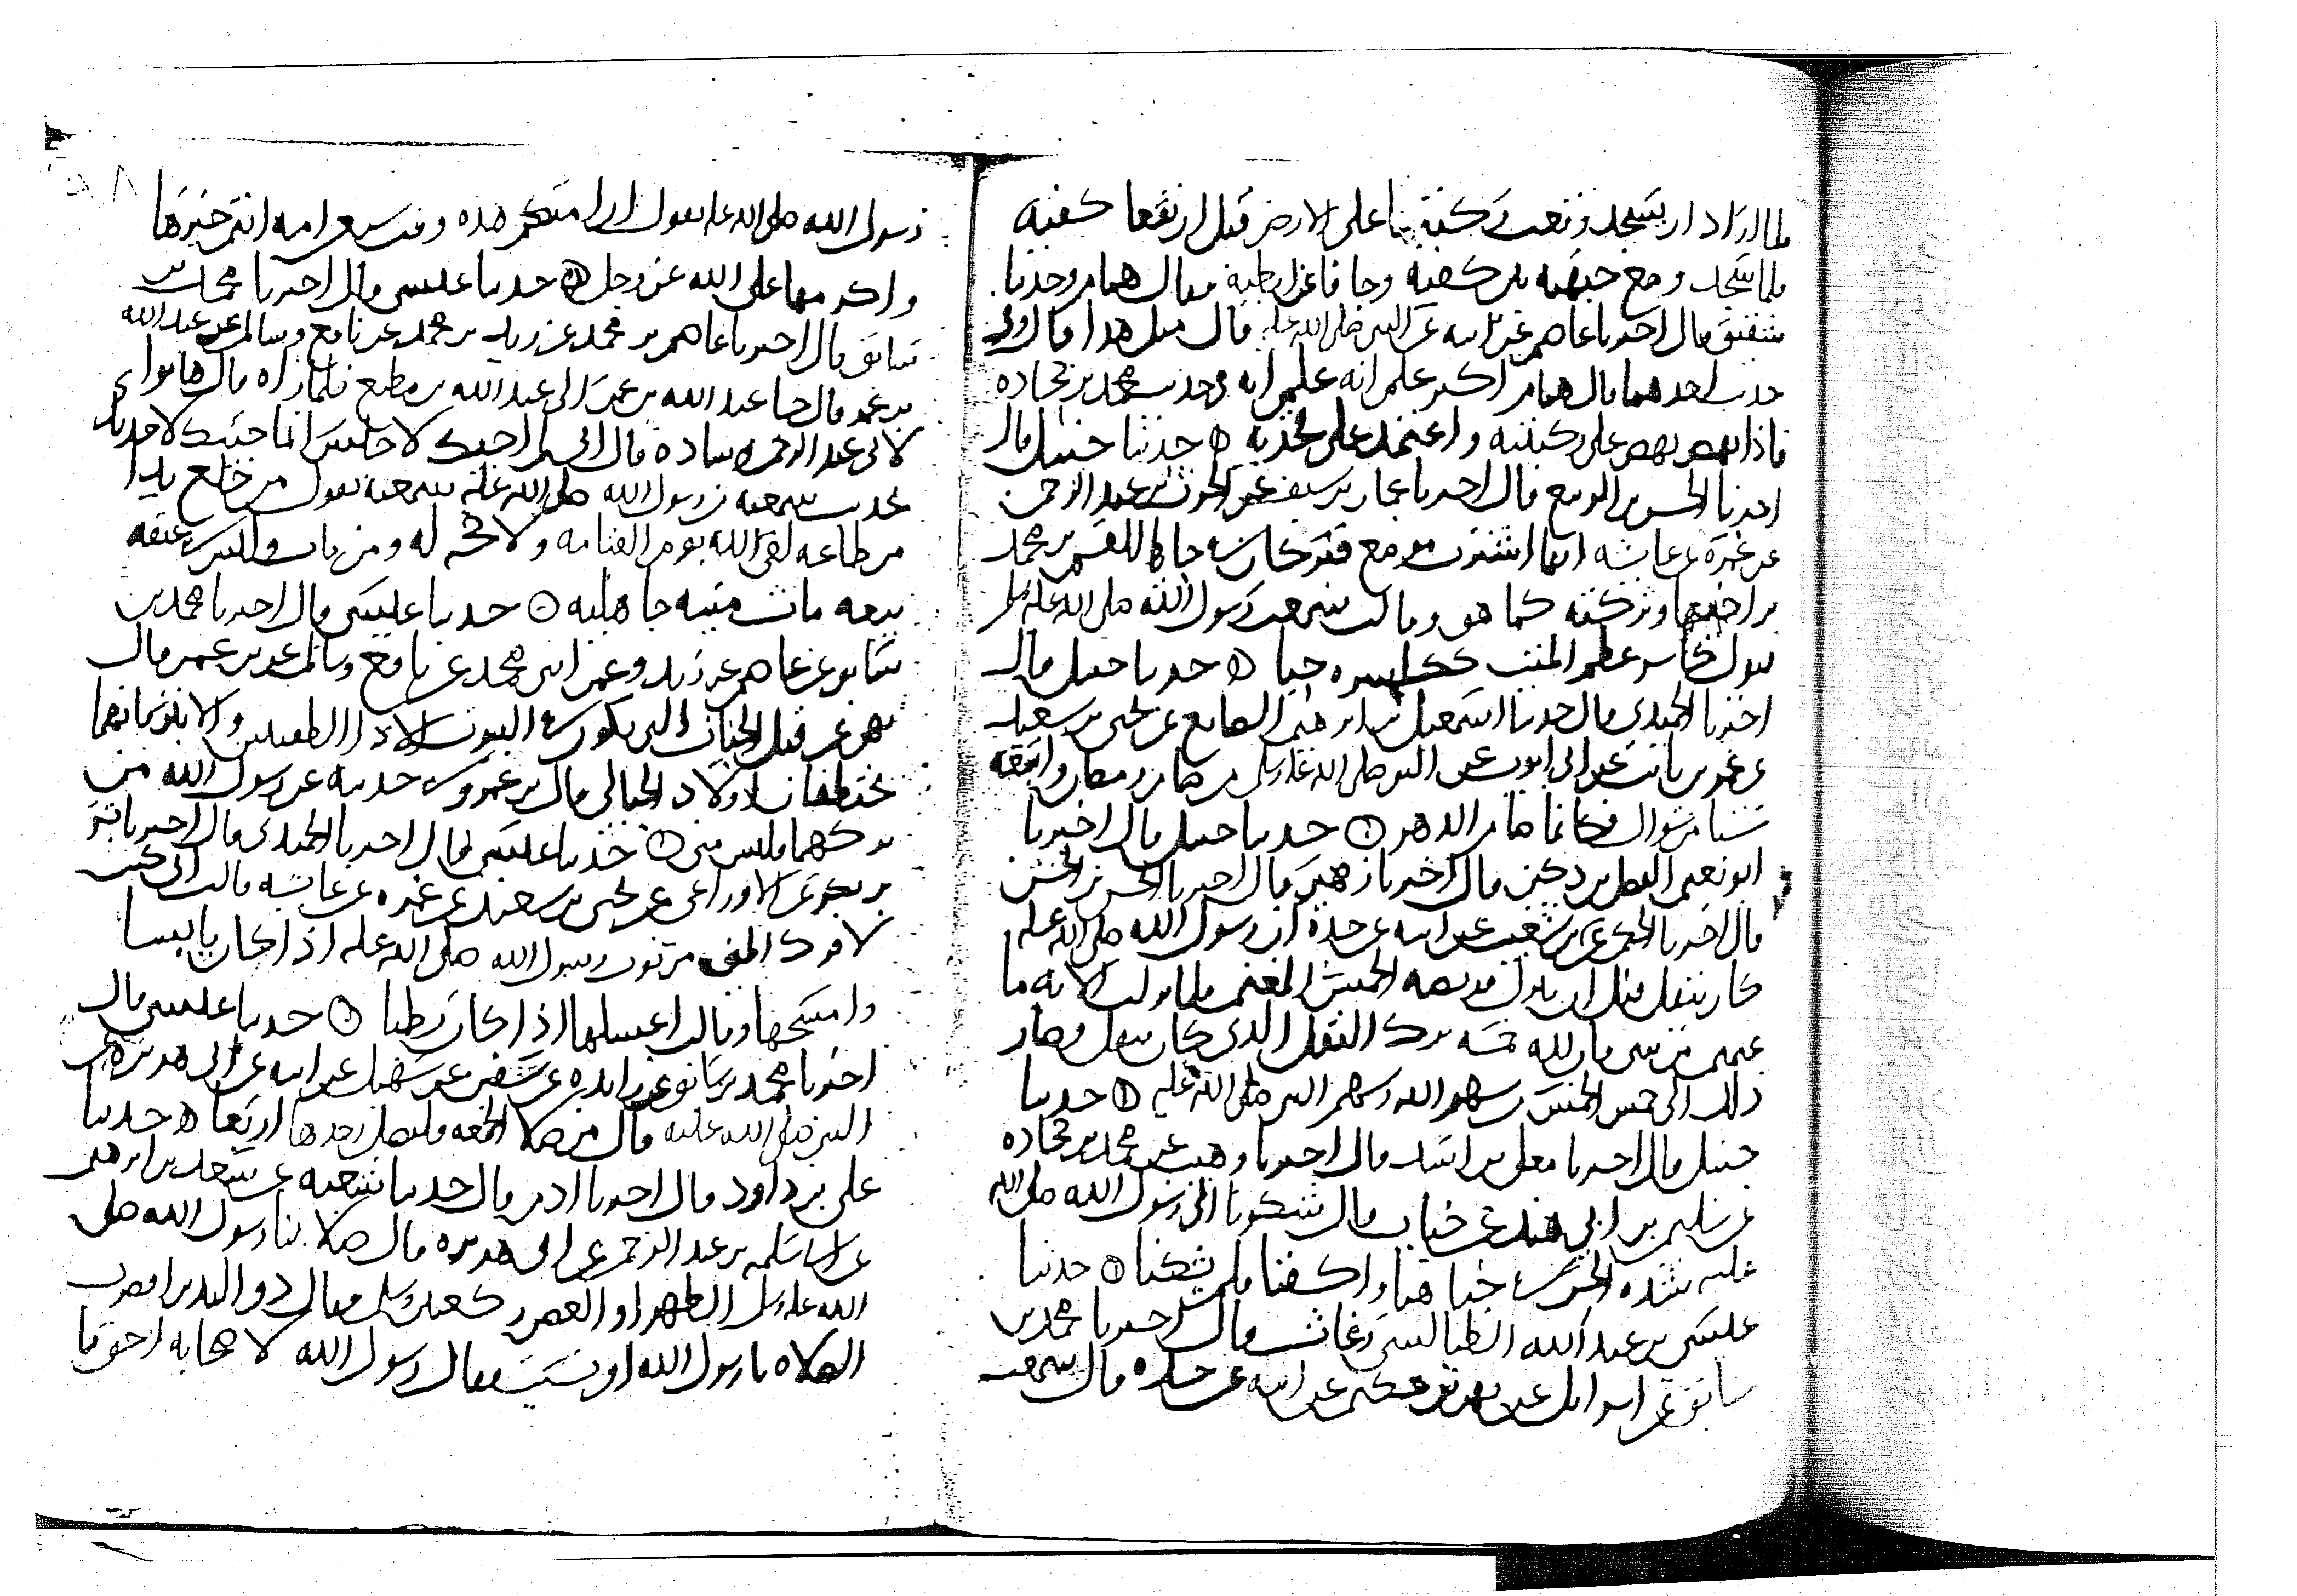 فلما اراد ان يسجد وقعت ركبتاه على الارض قبل ان تقعا كفيه
فلما سجد وضع جبهته بين كفيه وجافا عن ابطيه قال همام وحدثنا
شقيق قال اخبرنا عاصم عن ابيه عن النبي صلى الله عليه قال مثل هذا قال وفي
حديث احدهما قال همام اكبر علمي انه علمي انه في حديث محمد بن جحاده
فاذا نهض نهض على ركبتيه واعتمد على فخذيه حدثنا حنبل قال
اخبرنا الحسن بن الربيع قال اخبرنا عمار بن سيف عن عبد الرحمن
عن عمره عن عائشه انها اشترت موضع قبر القسم بن محمد
بن اخيها وتركته كما هو وقالت سمعت رسول الله صلى الله عليه وسلم
يقول كاسر عظم الميت ككاسره حيا حدثنا حنبل قال
اخبرنا الحميدي قال حدثنا اسمعيل بن ابرهيم الصايغ عن يحيى بن سعيد
عن عمر بن ثابت عن ابي ايوب عن النبي صلى الله عليه وسلم من صام رمضان واتبعه
ستا من شوال فكانما صام الدهر حدثنا حنبل قال اخبرنا
ابو نعيم الفضل بن دكين قال اخبرنا زهير قال اخبرنا الحسن بن الحر
قال اخبرنا الحكم عن بن شعيب عن ابيه عن جده ان رسول الله صلى الله عليه
كان ينفل قبل ان ينزل فريضه الخمس المغنم فلما نزلت الايه ما
غنمتم من شي فان لله خمسه ترك النفل الذي كان ينفل وصار
ذلك الى خمس الخمس سهم الله وسهم النبي صلى الله عليه حدثنا
حنبل قال اخبرنا معلى بن اسد قال اخبرنا وهيب عن محمد بن جحاده
عن سليمن بن ابي هند عن خباب قال شكونا الى رسول الله صلى الله
عليه شده الحر في جباهنا واكفنا فلم يشكنا حدثنا
عيسى بن عبد الله الطيالسي زغاث قال اخبرنا محمد بن
سابق عن اسرائيل عن بهز بن حكيم عن ابيه عن جده قال سمعت
رسول الله صلى الله عليه يقول ان امتكم هذه وفت سبعين امه انتم خيرها
واكرمها على الله عز وجل حدثنا عيسى قال اخبرنا محمد بن
سابق قال اخبرنا عاصم بن محمد عن زيد بن محمد عن نافع وسالم عن عبد الله
بن عمر قال جا عبد الله بن عمر الى عبد الله بن مطيع فلما راه قال هاتوا
لابي عبد الرحمن وساده قال اني لم اجيك لاجلس انما جيتك لاحدثك
بحديث سمعته من رسول الله صلى الله عليه سمعته يقول من خلع يدا
من طاعه لقي الله يوم القيامه ولا حجه له ومن مات وليس في عنقه
بيعه مات ميته جاهليه حدثنا عيسى قال اخبرنا محمد بن
سابق عن عاصم عن زيد وعمر ابني محمد عن نافع وسالم عن بن عمر قال
نهى عن قتل الجنان التي تكون في البيوت الا ذا الطفيتين والابتر فانهما
يختطفان اولاد الحبالى قال بن عمر وفي حديثه عن رسول الله من
تركهما فليس مني حدثنا عيسى قال اخبرنا الحميدي قال اخبرنا بشر
بن بكر عن الاوزاعي عن يحيى بن سعيد عن عمره عن عائشه قالت اني كنت
لافرك المني من ثوب رسول الله صلى الله عليه اذا كان يابسا
وامسحها وقالت اغسلها اذا كان رطبا حدثنا عيسى قال
اخبرنا محمد بن سابق عن زايده عن سفين عن سهيل عن ابيه عن ابي هريره عن
النبي صلى الله عليه قال من صلا الجمعه فليصل بعدها اربعا حدثنا
علي بن داود قال اخبرنا ادم قال حدثنا شعبه عن سعد بن ابرهيم
عن ابي سلمه بن عبد الرحمن عن ابي هريره قال صلا بنا رسول الله صلى
الله عليه وسلم الظهر او العصر ركعتين وسلم فقال ذو اليدين اقصرت
الصلاه يا رسول الله او نسيت فقال رسول الله لاصحابه احق ما